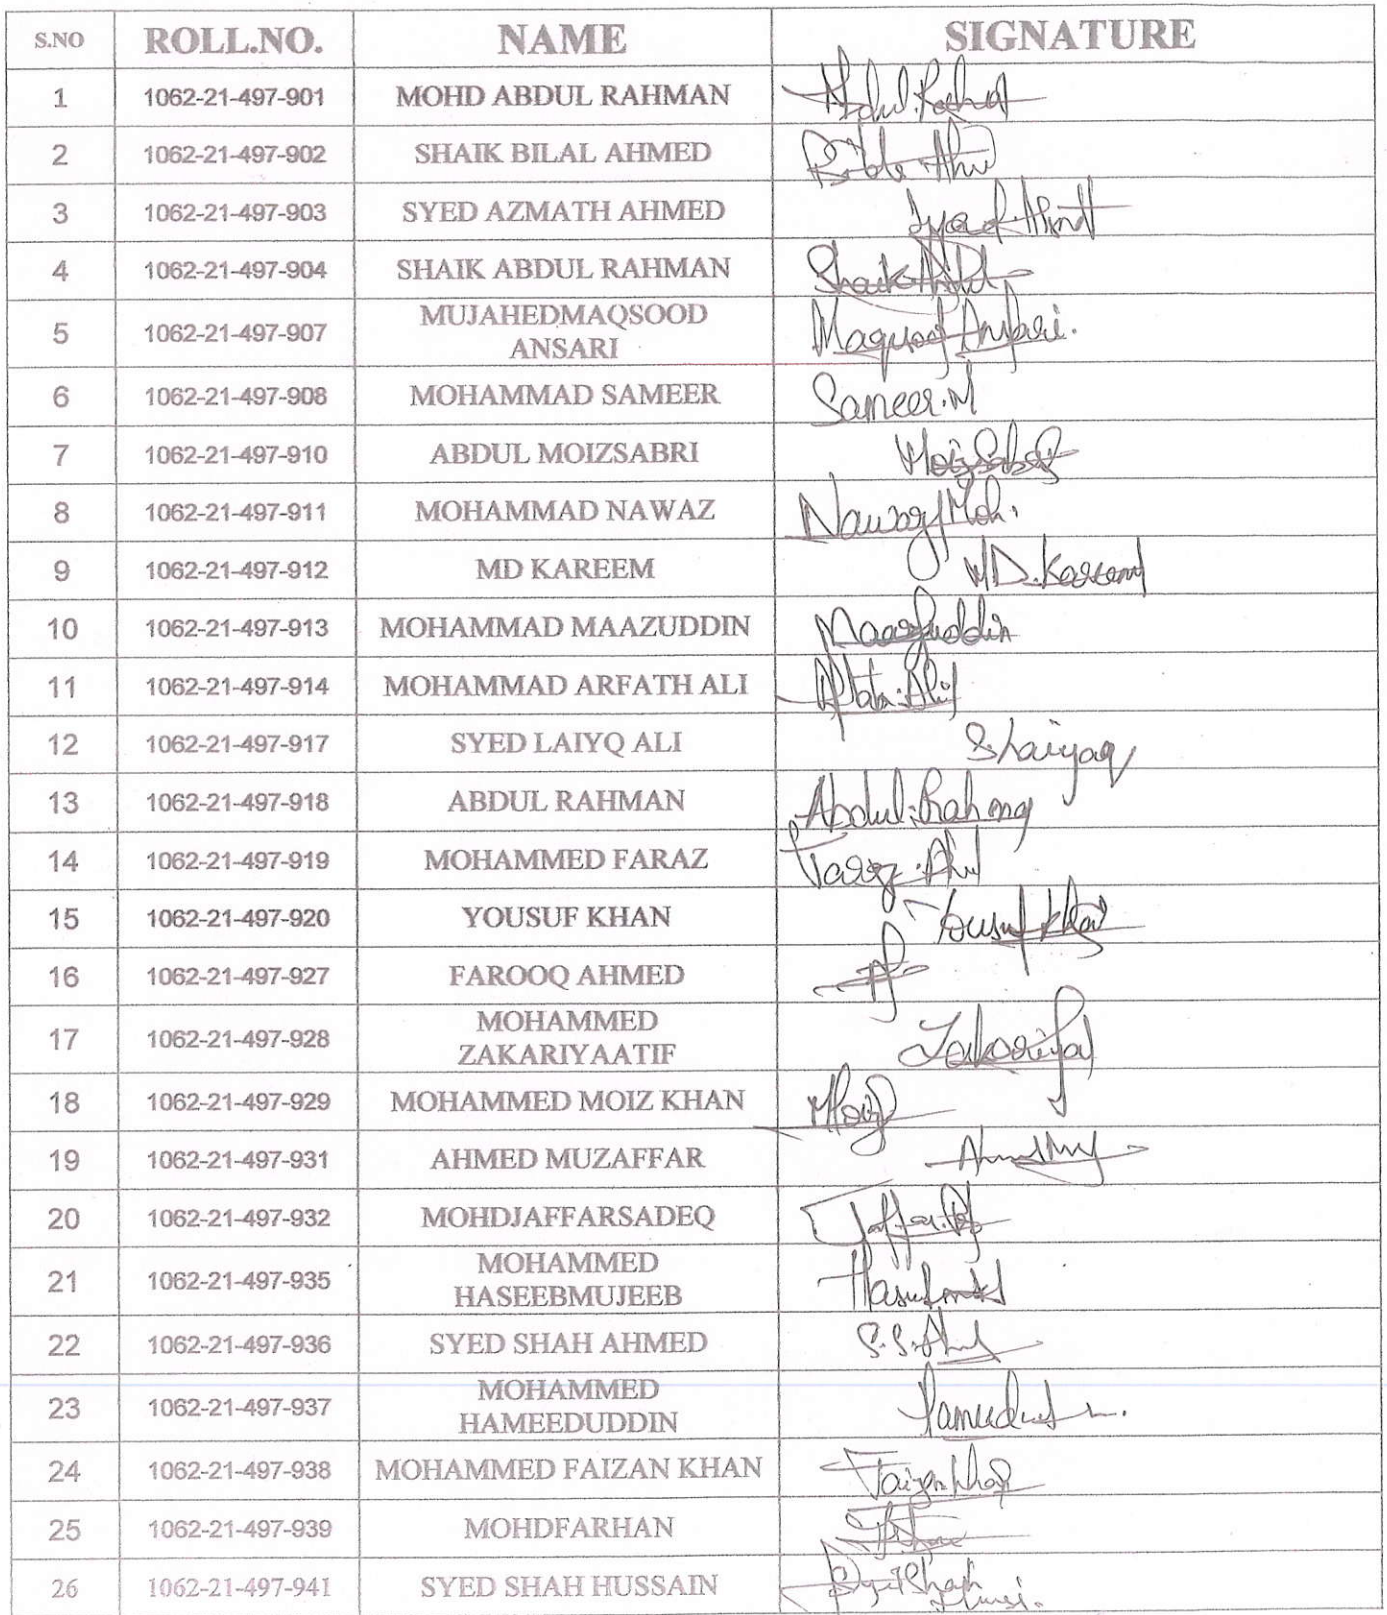 S.NO ROLL.NO. NAME SIGNATURE
1 1062-21-497-901 MOHD ABDUL RAHMAN
2 1062-21-497-902 SHAIK BILAL AHMED
3 1062-21-497-903 SYED AZMATH AHMED
4 1062-21-497-904 SHAIK ABDUL RAHMAN Shaik
5 1062-21-497-907 MUJAHEDMAQSOOD
ANSARI
6 1062-21-497-908 MOHAMMAD SAMEER Sameer.M
7 1062-21-497-910 ABDUL MOIZSABRI
8 1062-21-497-911 MOHAMMAD NAWAZ Nawaz Moh.
9 1062-21-497-912 MD KAREEM MD.Kareem
10 1062-21-497-913 MOHAMMAD MAAZUDDIN Maazuddin
11 1062-21-497-914 MOHAMMAD ARFATH ALI
12 1062-21-497-917 SYED LAIYQ ALI S.Laiyaq
13 1062-21-497-918 ABDUL RAHMAN
14 1062-21-497-919 MOHAMMED FARAZ
15 1062-21-497-920 YOUSUF KHAN Yousuf Khan
16 1062-21-497-927 FAROOQ AHMED
17 1062-21-497-928 MOHAMMED
ZAKARIYAATIF
18 1062-21-497-929 MOHAMMED MOIZ KHAN Moiz
19 1062-21-497-931 AHMED MUZAFFAR
20 1062-21-497-932 MOHDJAFFARSADEQ
21 1062-21-497-935 MOHAMMED
HASEEBMUJEEB
22 1062-21-497-936 SYED SHAH AHMED
23 1062-21-497-937 MOHAMMED
HAMEEDUDDIN
24 1062-21-497-938 MOHAMMED FAIZAN KHAN Faizan Khan
25 1062-21-497-939 MOHDFARHAN
26 1062-21-497-941 SYED SHAH HUSSAIN